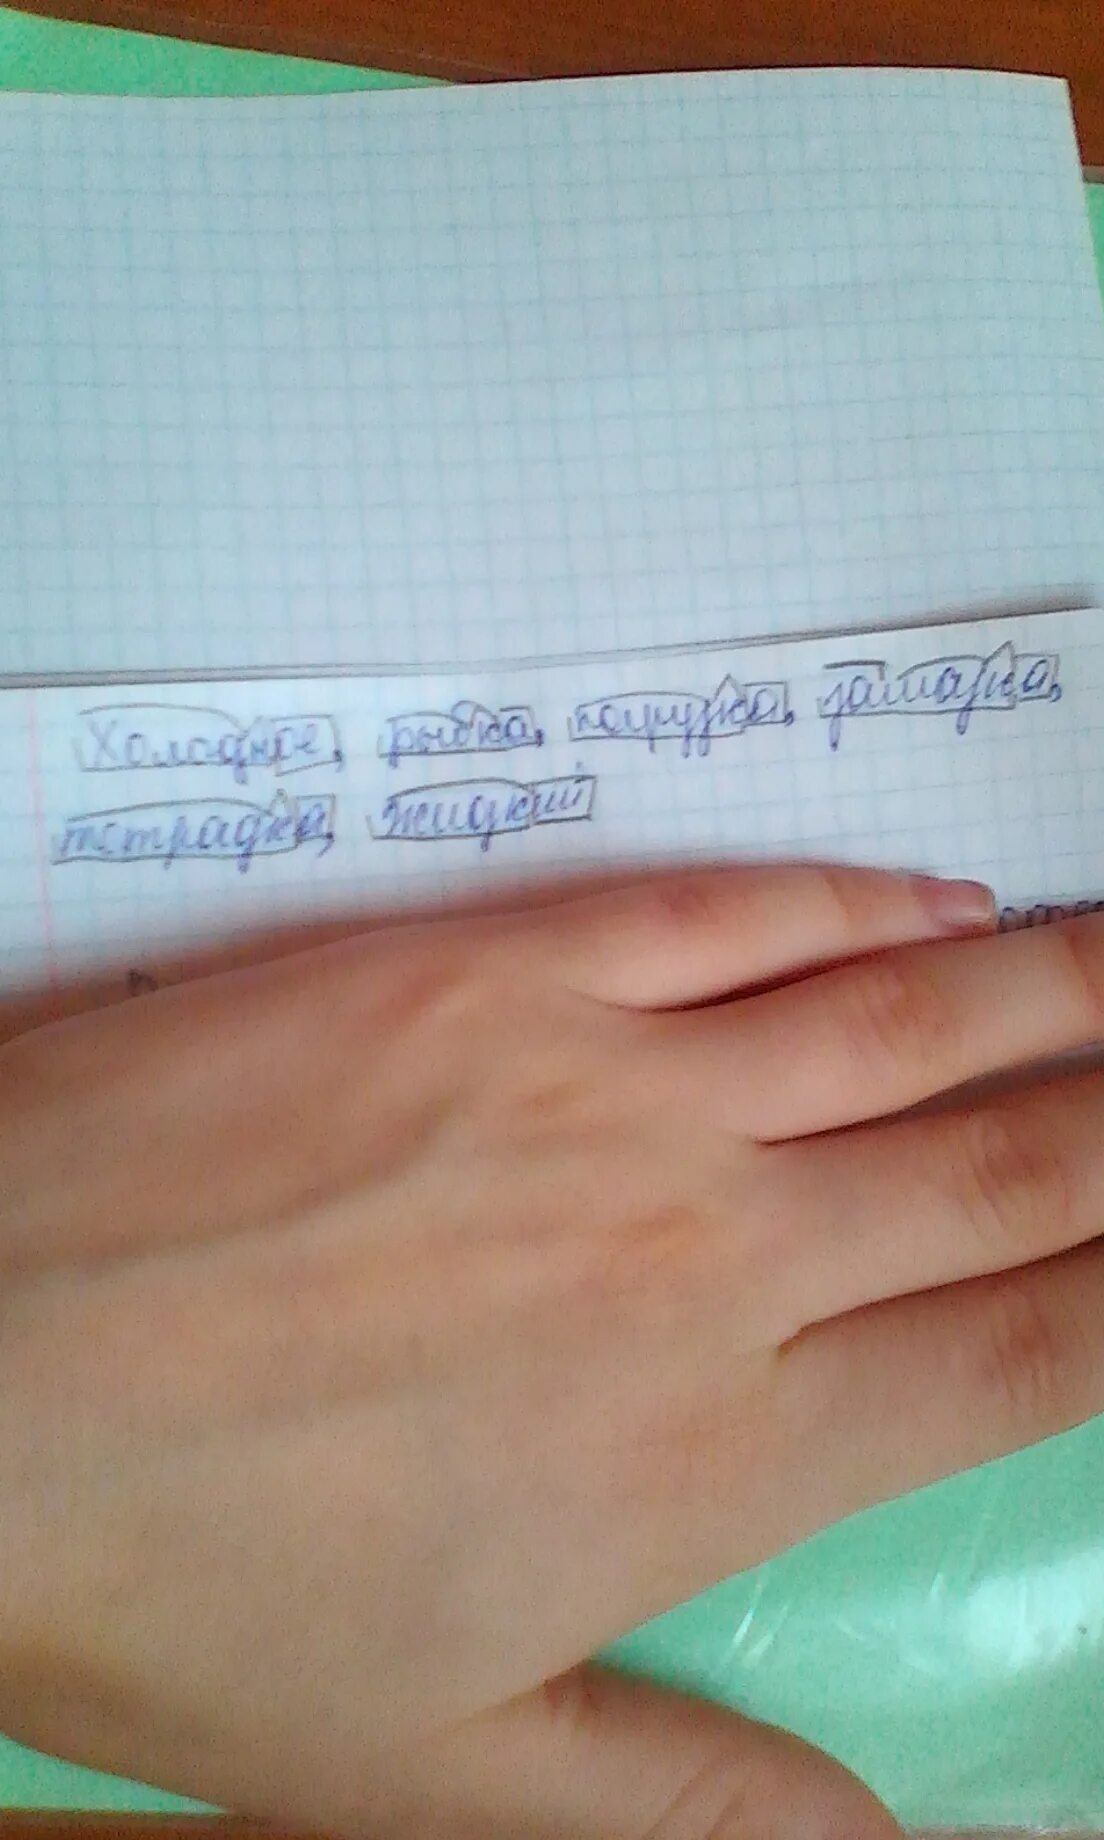 Холодное, рыбка, погрузка, замазка,
тетрадка, жидкий